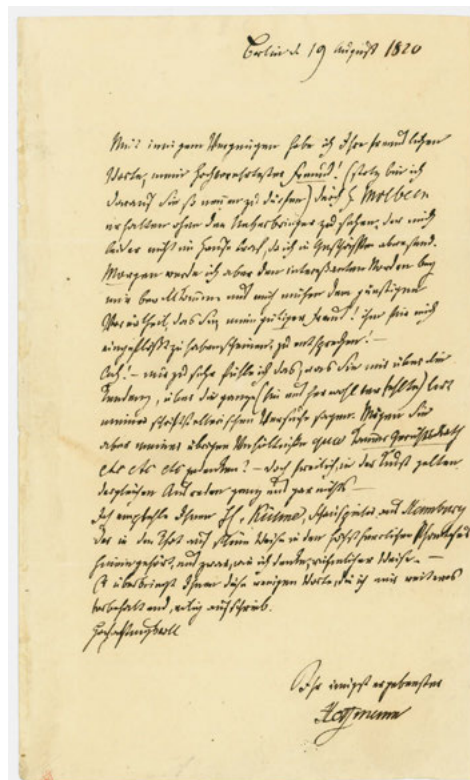 Berlin d. 19 August 1820
Mit innigem Vergnügen habe ich Ihre freundlichen
Worte, mein Hochverehrtester Freund! (stolz bin ich
darauf Sie so nennen zu dürfen) durch H. Molbech
erhalten ohne den Ueberbringer zu sehen, der mich
leider nicht im Hause traf, da ich in Geschäften abwesend.
Morgen werde ich aber den interessanten Norden bey
mir und mich mühen dem günstigen
Vorurtheil, das Sie, mein gütiger Freund! ihm für mich
eingeflößt zu haben scheinen, zu entsprechen! –
Ach! – nur zu sehr fühle ich das, was Sie mir über die
Tendenz, über die ganze (hin und her wohl verfehlte) Art
meiner schriftstellerischen Versuche sagen. Mögen Sie
aber meiner übrigen Verhältnisse qua KammerGerichtsRath
etc etc etc gedenken? – Doch freilich, in der Kunst gelten
dergleichen Ausreden ganz und gar nichts –
Ich empfehle Ihnen H. Kühne, Schauspieler aus Hamburg
der in der That auf Weise in den
hineingehört, und zwar, wie ich denke, rühmlicher Weise. –
Er überbringt Ihnen diese wenigen Worte, die ich mir weiteres
vorbehaltend, eilig aufschrieb.
Hochachtungsvoll
Ihr innigst ergebenster
Hoffmann